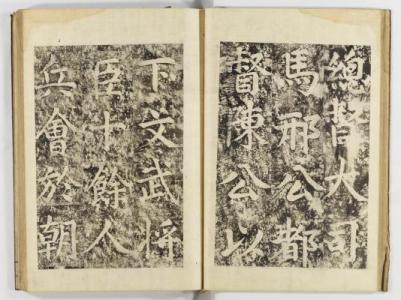 總督大司
馬邢公都
督陳公以
下文武將
臣十餘人
兵會於朝